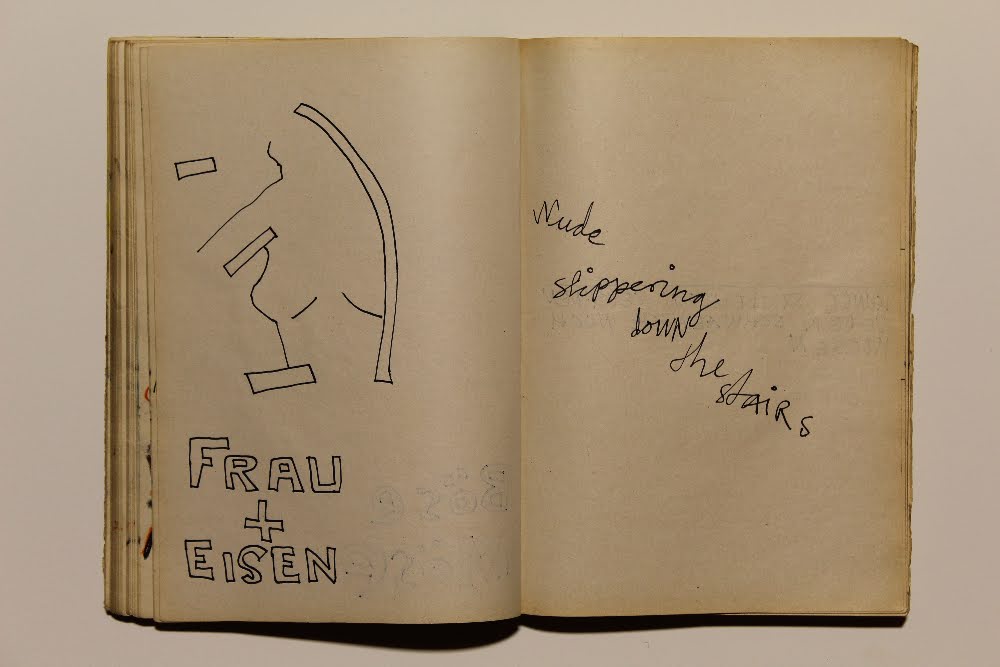 FRAU
+
EISEN
Nude
slippering
down
the
stairs